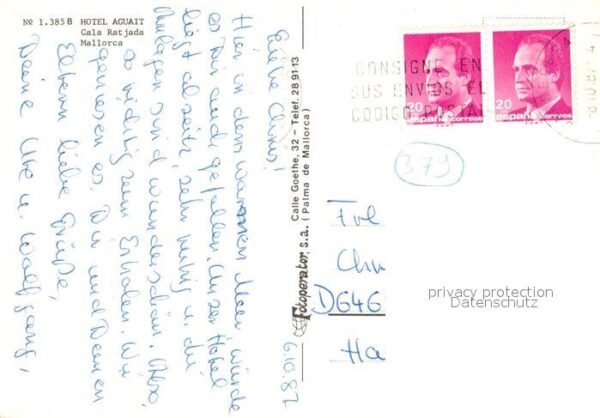 Nº 1.385 B HOTEL AGUAIT
Cala Ratjada
Mallorca
6.10.87
Liebe Chris!
Hier in dem warmen Meer würde
es Dir auch gefallen. Unser Hotel
liegt abseits, sehr ruhig u. die
Anlagen sind wunderschön. Also
so richtig zum Erholen. Wir
geniessen es. Dir und Deinen
Eltern liebe Grüße,
Deine Ute u. Wolfgang,
Fotoperator, s.a. Calle Goethe, 32 - Telef. 28 91 13
(Palma de Mallorca)
CONSIGNE EN
SUS ENVIOS EL
CODIGO POSTAL
20
españa correos
20
españa correos
379
Chr
D646
Ha
privacy protection
Datenschutz